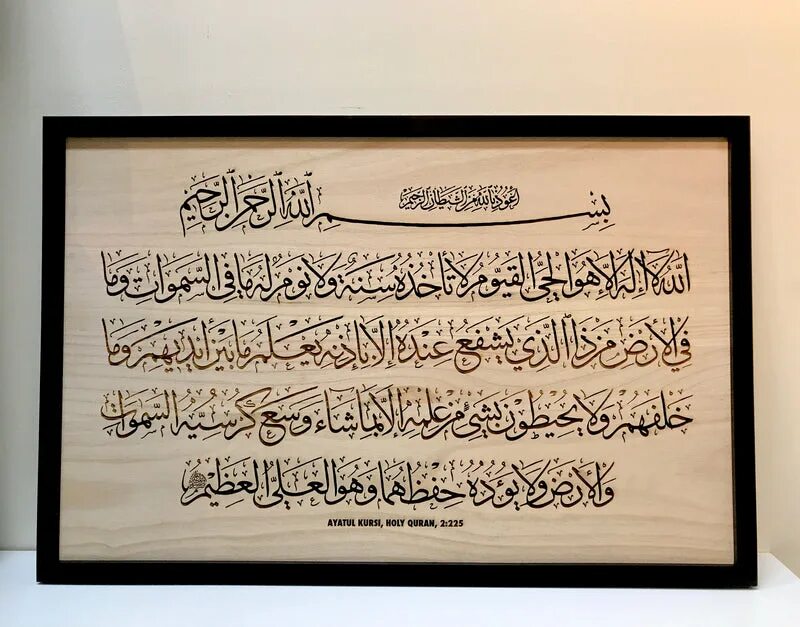 أعوذ بالله من الشيطان الرجيم
بسم الله الرحمن الرحيم
الله لا إله إلا هو الحي القيوم لا تأخذه سنة ولا نوم له ما في السموات وما
في الأرض من ذا الذي يشفع عنده إلا بإذنه يعلم ما بين أيديهم وما
خلفهم ولا يحيطون بشيء من علمه إلا بما شاء وسع كرسيه السموات
والأرض ولا يؤده حفظهما وهو العلي العظيم
AYATUL KURSI, HOLY QURAN, 2:225